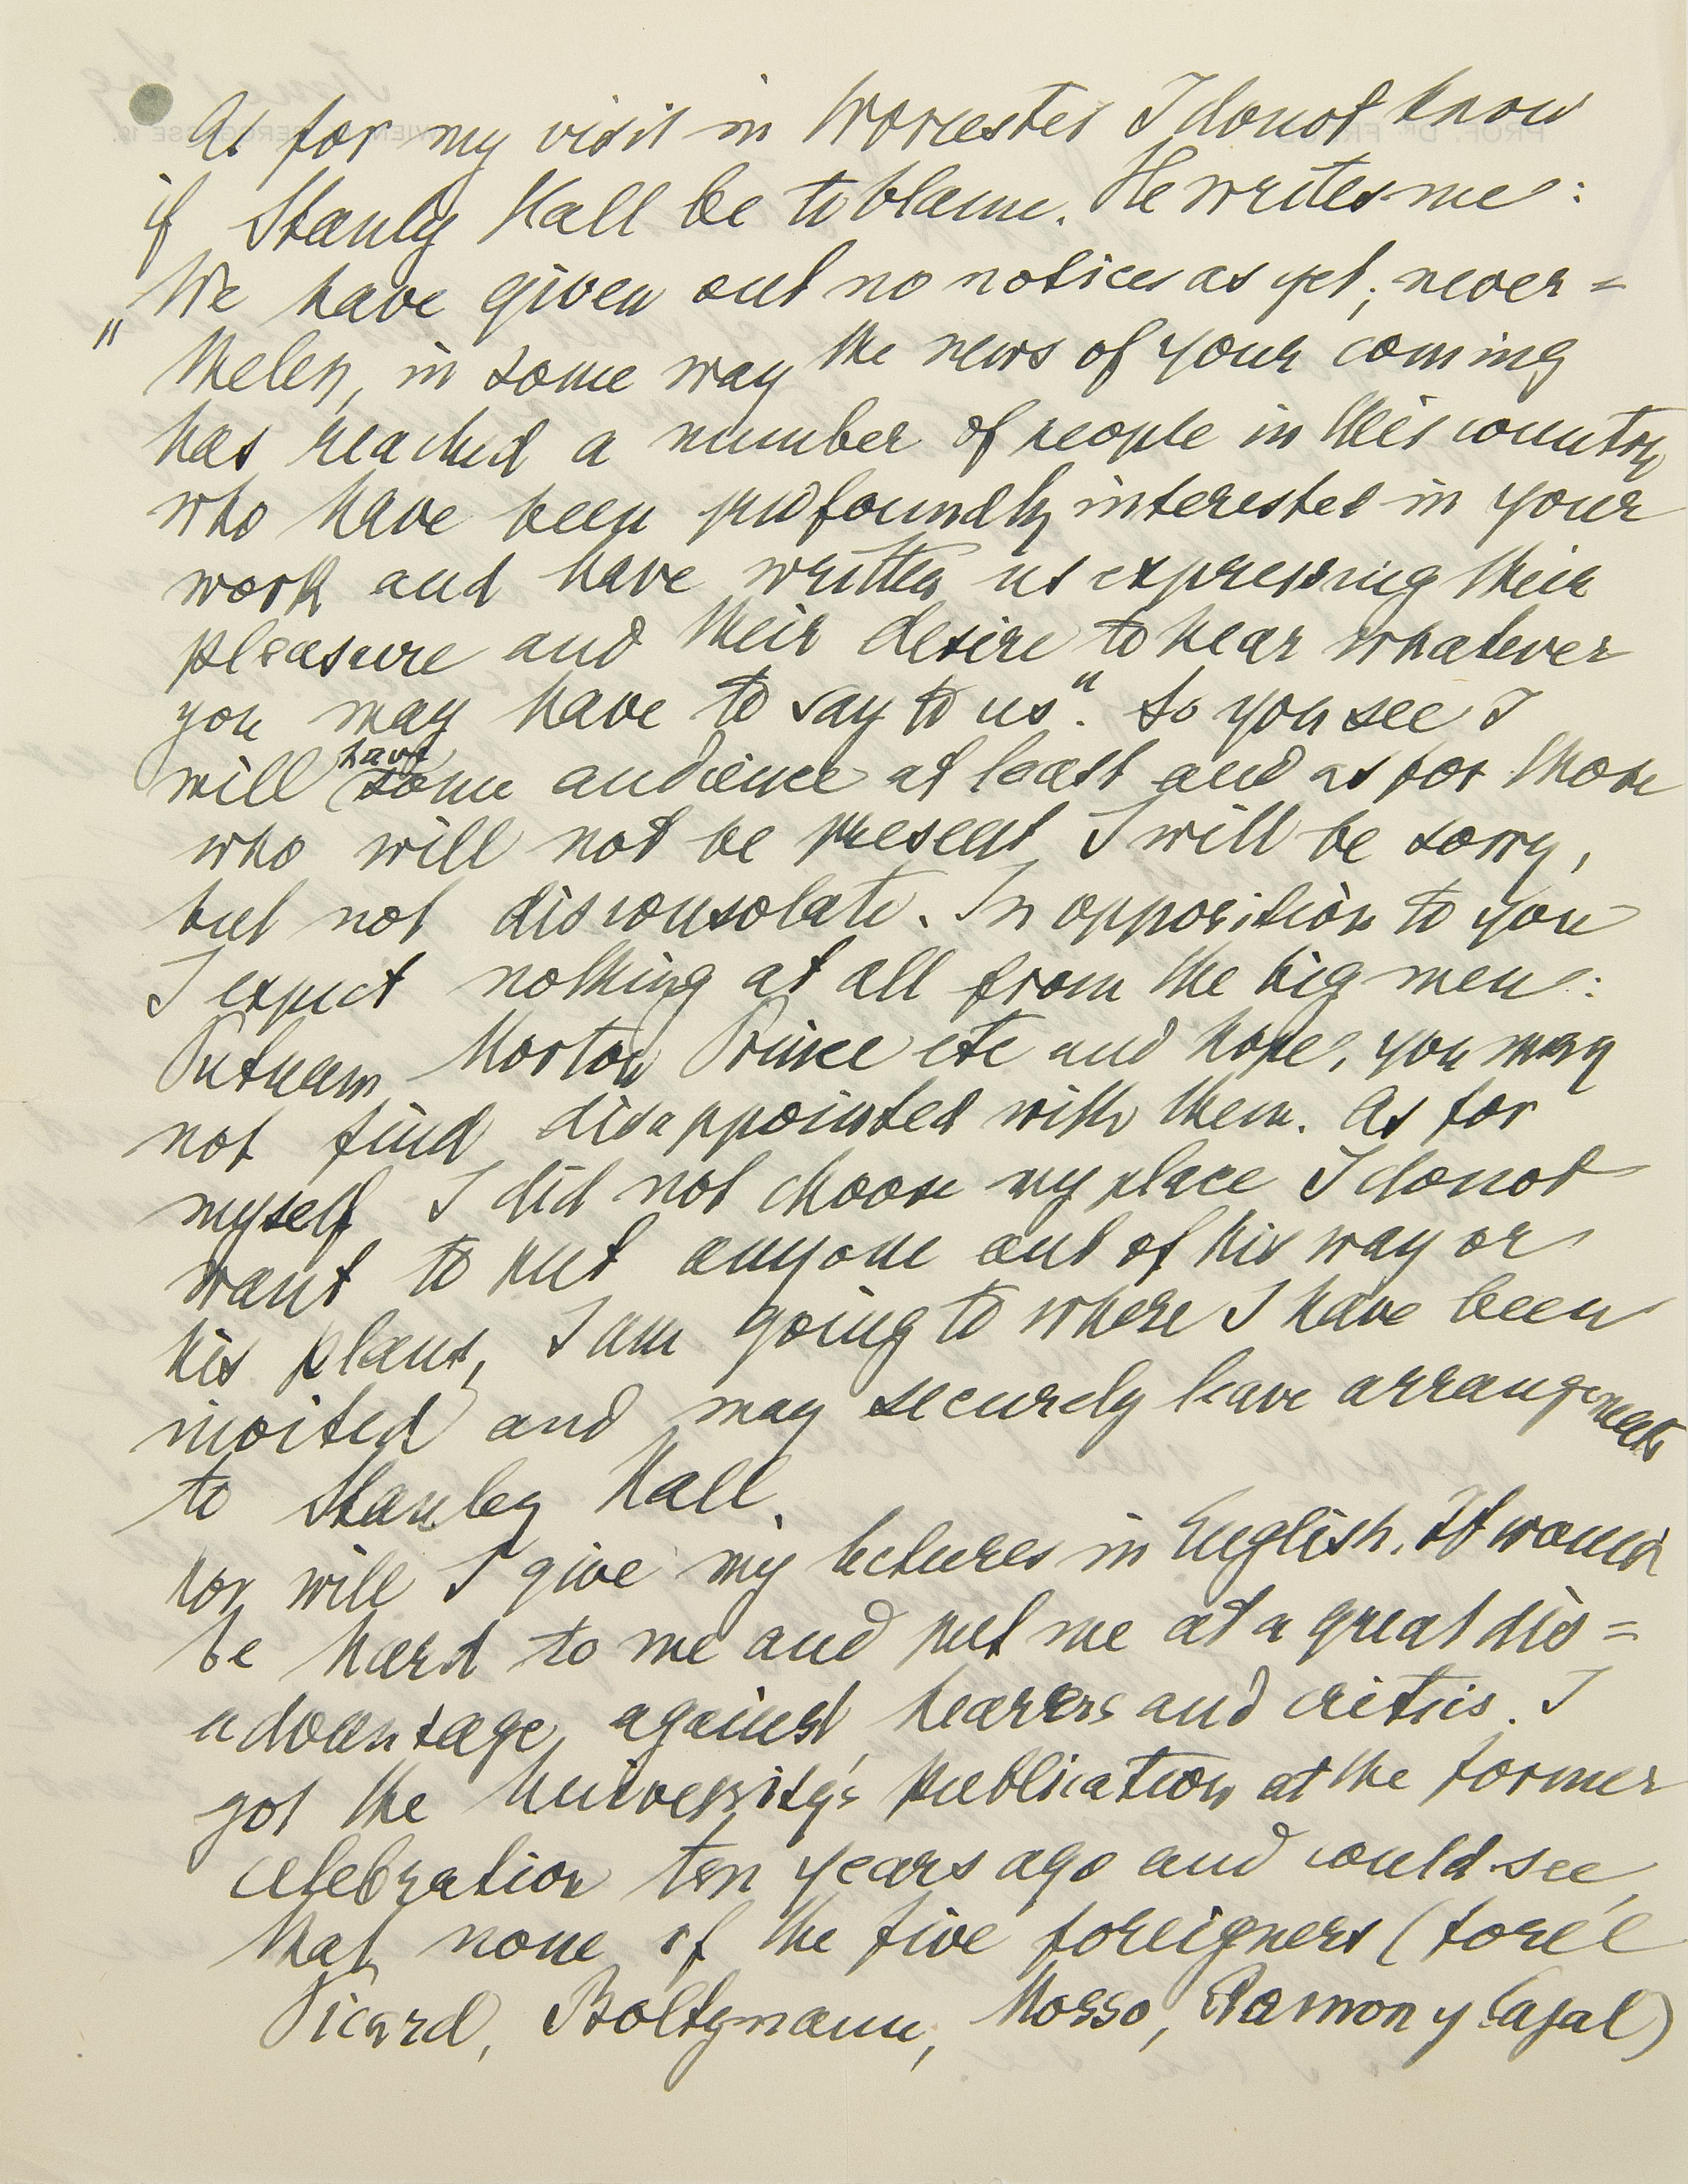 As for my visit in Worcester I do not know
if Stanley Hall be to blame. He writes me:
"We have given out no notices as yet; never=
theless, in some way the news of your coming
has reached a number of people in this country
who have been profoundly interested in your
work and have written us expressing their
pleasure and their desire to hear whatever
you may have to say to us". So you see I
will have some audience at least and as for those
who will not be present I will be sorry,
but not disconsolate. In opposition to you
I expect nothing at all from the big men:
Putnam Morton Prince etc and hope, you may
not find disappointed with them. As for
myself I did not choose my place I do not
want to put anyone out of his way or
his plans, I am going to where I have been
invited and may securely leave arrangements
to Stanley Hall.
Nor will I give my lectures in English. It would
be hard to me and put me at a great dis=
advantage against hearers and critics. I
got the University's publication at the former
celebration ten years ago and could see,
that none of the five foreigners (Forel
Picard, Boltzmann, Mosso, Ramon y Cajal)